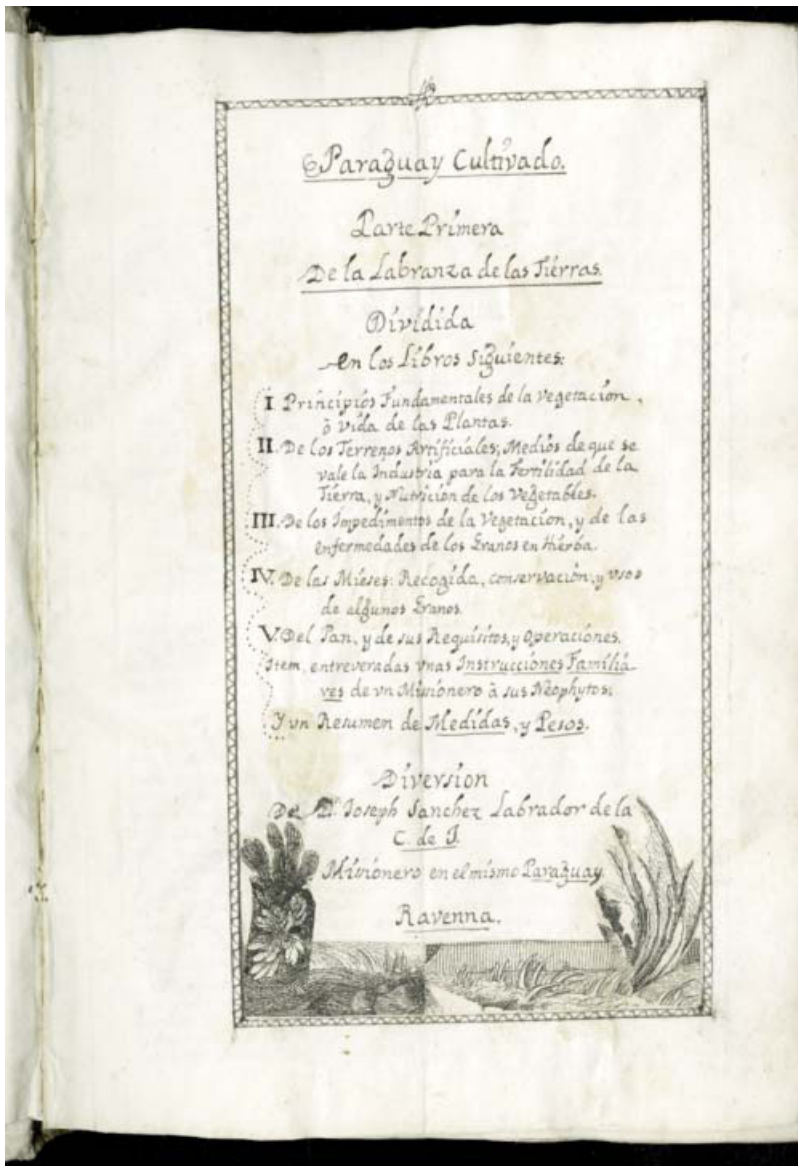 Paraguay Cultivado.
Parte Primera
De la Labranza de las Tierras.
Dividida
en los Libros Siguientes:
I. Principios Fundamentales de la Vegetacion,
ò vida de las Plantas.
II. De los Terrenos Artificiales; Medios de que se
vale la Industria para la Fertilidad de la
Tierra, y Nutricion de los Vegetables.
III. De los Impedimentos de la Vegetacion, y de las
enfermedades de los Granos en Hierba.
IV. De las Mieses: Recogida, conservacion, y usos
de algunos Granos.
V. Del Pan, y de sus Requisitos, y Operaciones.
Item, entreveradas vnas Instrucciones Familia-
res de vn Misionero à sus Neophytos;
Y vn Resumen de Medidas, y Pesos.
Diversion
Del P. Joseph Sanchez Labrador de la
C. de J.
Misionero en el mismo Paraguay.
Ravenna.